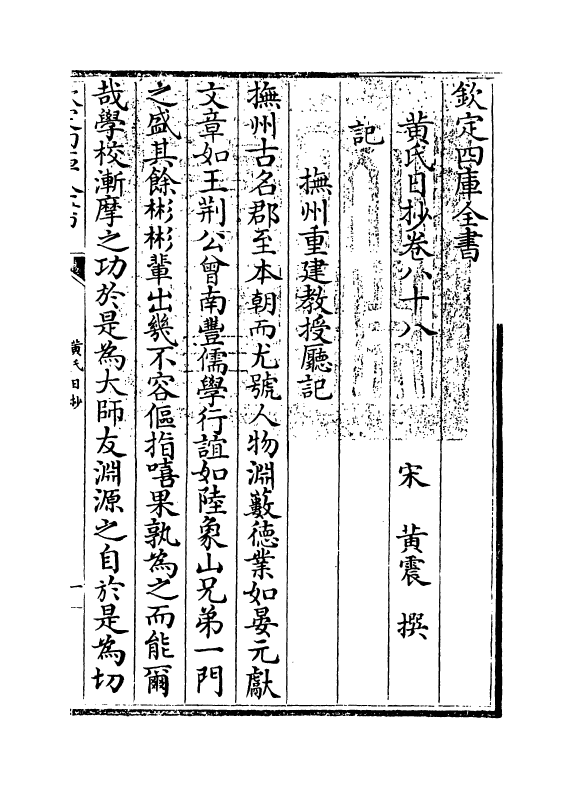 欽定四庫全書
黃氏日抄卷八十八
宋 黃震 撰
記
撫州重建教授廳記
撫州古名郡至本朝而尤號人物淵藪德業如晏元獻
文章如王荆公曾南豐儒學行誼如陸象山兄弟一門
之盛其餘彬彬輩出幾不容傴指嘻果孰為之而能爾
哉學校漸摩之功於是為大師友淵源之自於是為切
黃氏日抄
一